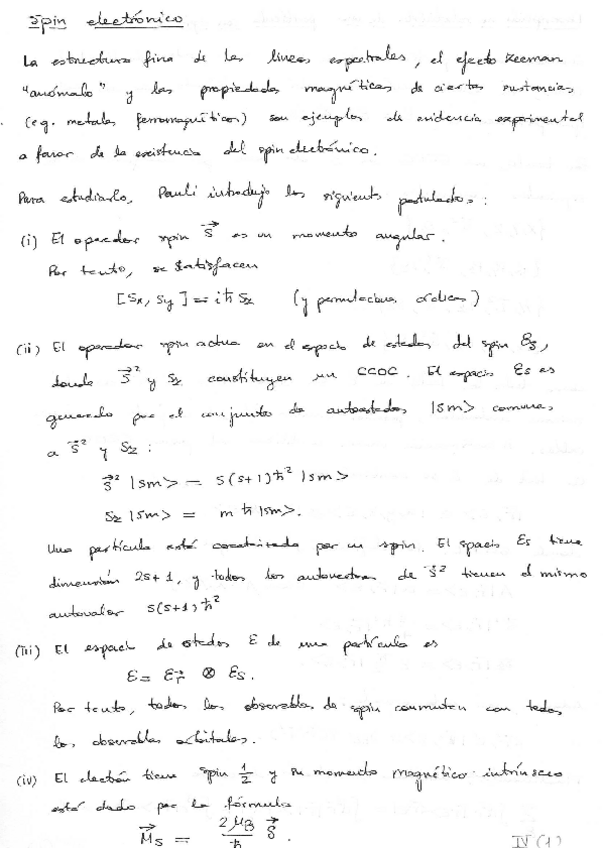 Spin electrónico
La estructura fina de las líneas espectrales, el efecto Zeeman
"anómalo" y las propiedades magnéticas de ciertas sustancias
(e.g. metales ferromagnéticos) son ejemplos de evidencia experimental
a favor de la existencia del spin electrónico.
Para estudiarlo, Pauli introdujo los siguientes postulados:
(i) El operador spin S⃗ es un momento angular.
Por tanto, se satisfacen
[Sx, Sy] = iħ Sz (y permutaciones cíclicas)
(ii) El operador spin actua en el espacio de estados del spin Es,
donde S⃗² y Sz constituyen un CCOC. El espacio Es es
generado por el conjunto de autoestados |sm> comunes
a S⃗² y Sz :
S⃗² |sm> = s(s+1)ħ² |sm>
Sz |sm> = m ħ |sm>.
Una partícula está caracterizada por un spin. El espacio Es tiene
dimensión 2s+1, y todos los autovectores de S⃗² tienen el mismo
autovalor s(s+1)ħ²
(iii) El espacio de estados E de una partícula es
E = Er⃗ ⊗ Es.
Por tanto, todos los observables de spin conmutan con todos
los observables orbitales.
(iv) El electrón tiene spin 1/2 y su momento magnético intrínseco
está dado por la fórmula
M⃗s = 2μB/ħ S⃗.
IV (1)